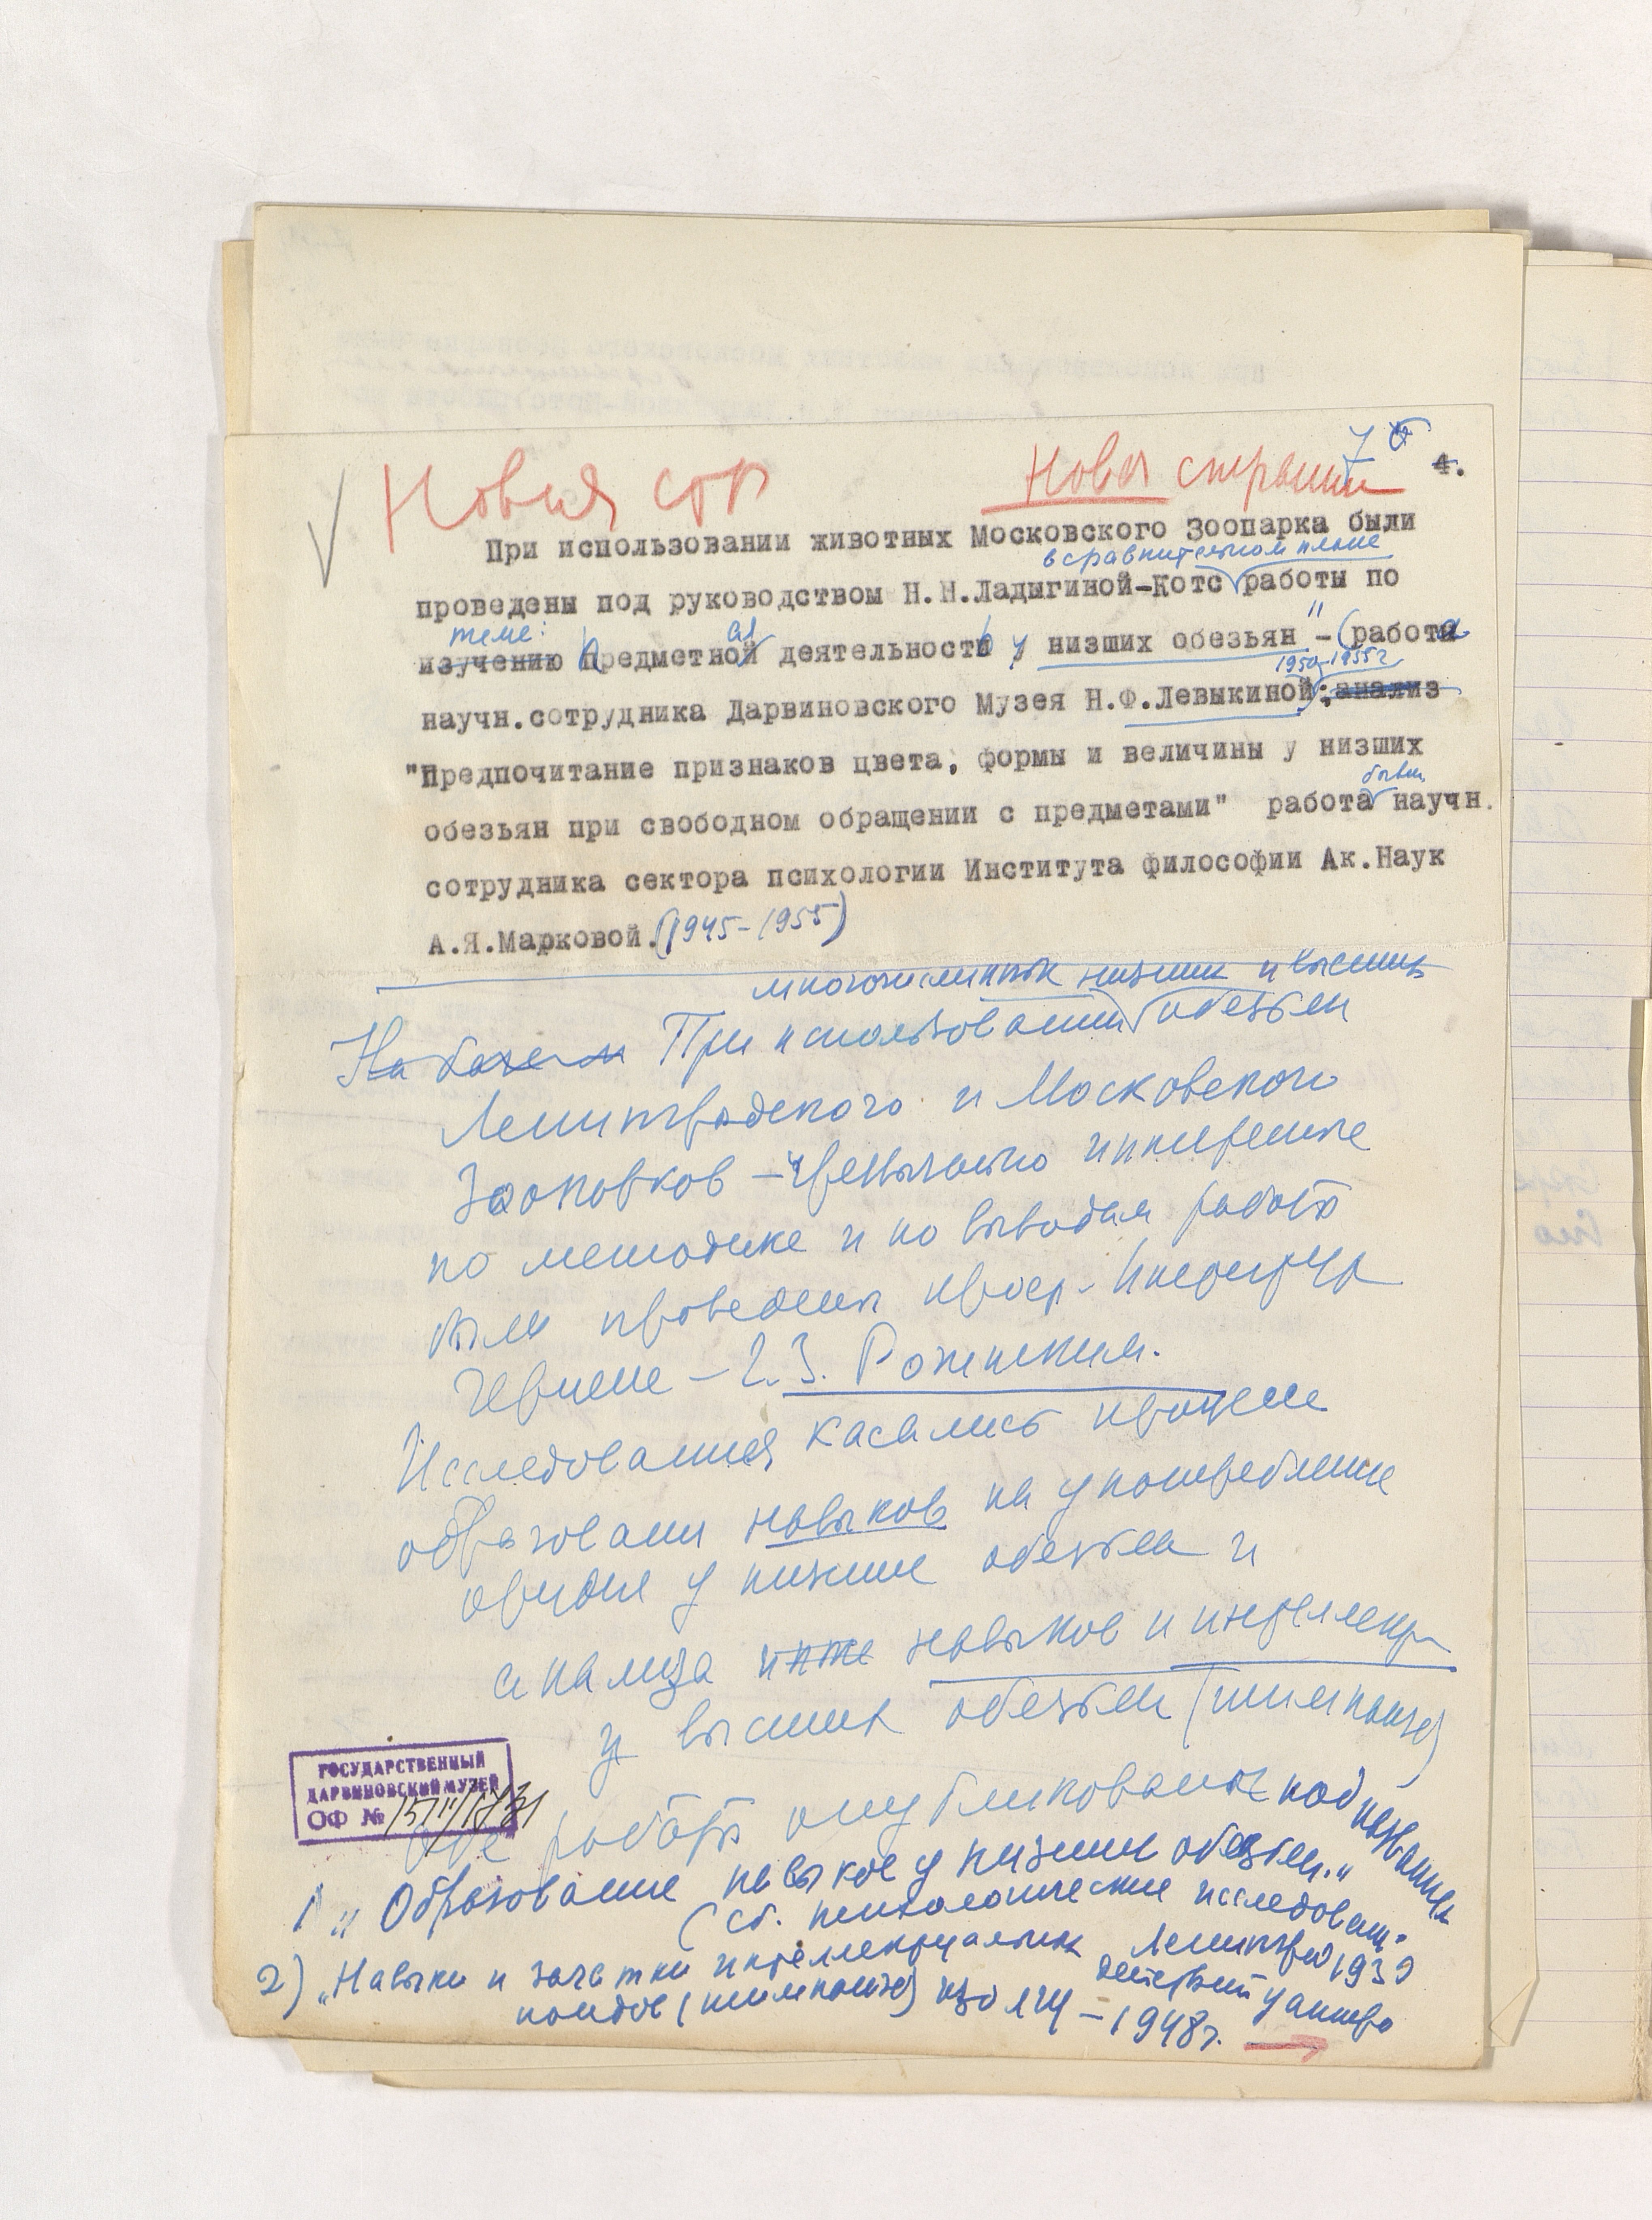 7
4.
Новая стр
Новая страница
При использовании животных Московского Зоопарка были
в сравнительном плане
проведены под руководством Н.Н.Ладыгиной-Котс работы по
теме:
изучению Предметной деятельности у низших обезьян" - (работа
1950-1955г
научн.сотрудника Дарвиновского Музея Н.Ф.Левыкиной; анализ
"Предпочитание признаков цвета, формы и величины у низших
бывш.
обезьян при свободном обращении с предметами" работа научн.
сотрудника сектора психологии Института философии Ак.Наук
А.Я.Марковой. (1945-1955)
многочисленных низших и высших
На базе При использовании обезьян
Ленинградского и Московского
Зоопарков - чрезвычайно интересные
по методике и по выводам работы
были проведены проф.
- Г.З. Рогинским.
Исследования касались процесса
образования навыков на употребление
орудия у низших обезьян и
анализа навыков и интеллекта
у высших обезьян (шимпанзе)
Обе работы опубликованы под названием
1 „Образование навыков у низших обезьян."
(Сб. психологические исследован.
Ленинград 1939
2) „Навыки и зачатки интеллектуальных действий у антро
поидов (шимпанзе) изд ЛГУ - 1948г.
ГОСУДАРСТВЕННЫЙ
ДАРВИНОВСКИЙ МУЗЕЙ
ОФ №